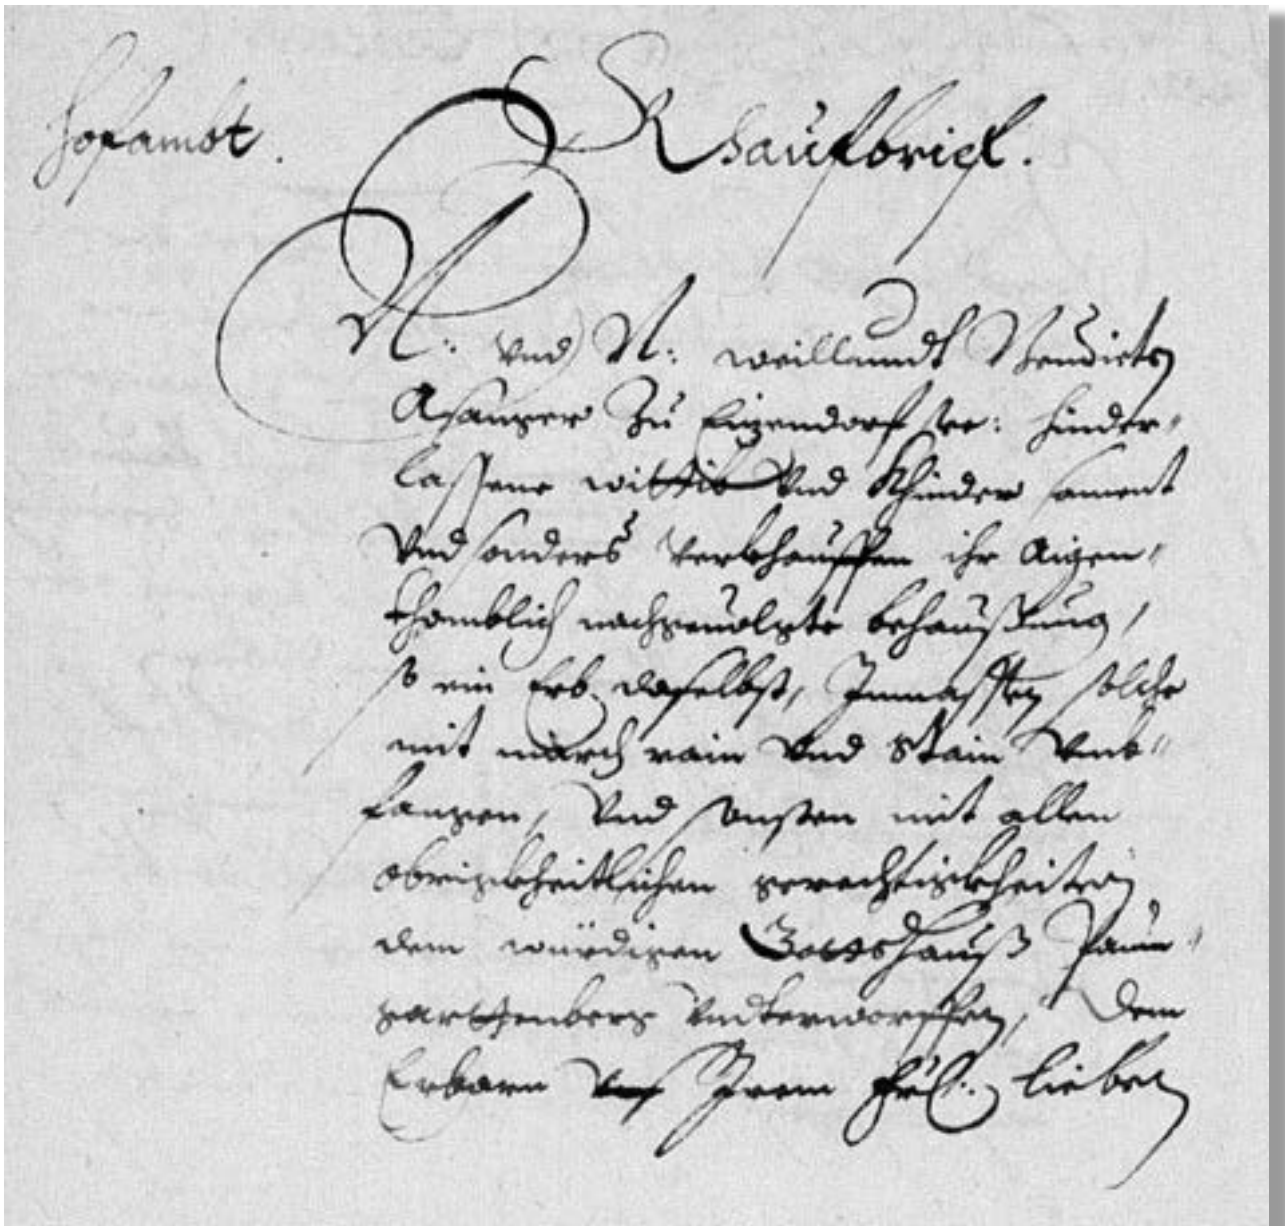 Hofambt.
Khaufbrief.
N: vnd N: weillanndt Benedicten
zu Einzendorf see: hinder-
lassene wittib vnd Khinder sament
vnd sonders verkhauffen ihr Aigen-
thomblich nachgeuolgte behaußung,
so ein Erb daselbst, Inmassen solche
mit march rain vnd Stain vmb-
fangen, vnd sonsten mit allen
obrigkheitlichen gerechtigkheiten
dem würdigen Gottshauß Paum-
garttenberg vndterworffen, dem
Erbarn Irem frdl: lieben